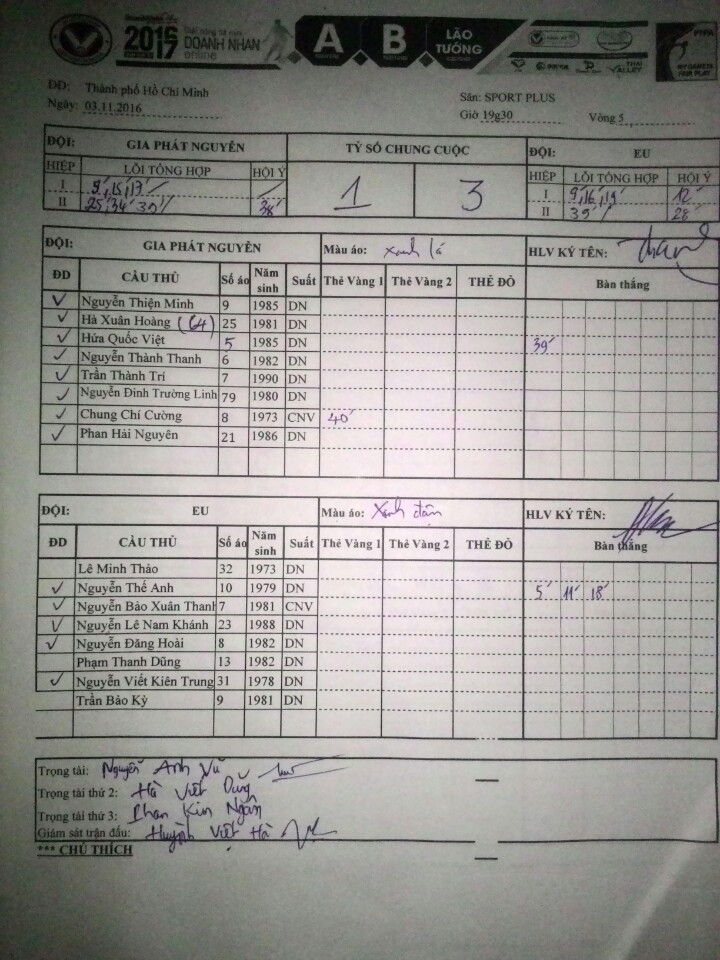 2016 2017 DOANH NHÂN online A B LÃO TƯỚNG
FIFA
MY GAME IS FAIR PLAY
ĐĐ: Thành phố Hồ Chí Minh Sân: SPORT PLUS
Ngày: 03.11.2016 Giờ 19g30 Vòng 5
ĐỘI: GIA PHÁT NGUYÊN TỶ SỐ CHUNG CUỘC ĐỘI: EU
HIỆP LỖI TỔNG HỢP HỘI Ý 1 3 HIỆP LỖI TỔNG HỢP HỘI Ý
I 9',15',17' I 9',16',19' 12'
II 25',34' 39' 38' II 39' 28'
ĐỘI: GIA PHÁT NGUYÊN Màu áo: Xanh lá HLV KÝ TÊN:
ĐD CẦU THỦ Số áo Năm sinh Suất Thẻ Vàng 1 Thẻ Vàng 2 THẺ ĐỎ Bàn thắng
✓ Nguyễn Thiện Minh 9 1985 DN
✓ Hà Xuân Hoàng (64) 25 1981 DN
✓ Hứa Quốc Việt 5 1985 DN 39'
✓ Nguyễn Thành Thanh 6 1982 DN
✓ Trần Thành Trí 7 1990 DN
✓ Nguyễn Đình Trường Linh 79 1980 DN
✓ Chung Chí Cường 8 1973 CNV 40'
✓ Phan Hải Nguyên 21 1986 DN
ĐỘI: EU Màu áo: Xanh đậm HLV KÝ TÊN:
ĐD CẦU THỦ Số áo Năm sinh Suất Thẻ Vàng 1 Thẻ Vàng 2 THẺ ĐỎ Bàn thắng
Lê Minh Thảo 32 1973 DN
✓ Nguyễn Thế Anh 10 1979 DN 5' 11' 18'
✓ Nguyễn Bảo Xuân Thanh 7 1981 CNV
✓ Nguyễn Lê Nam Khánh 23 1988 DN
✓ Nguyễn Đăng Hoài 8 1982 DN
Phạm Thanh Dũng 13 1982 DN
✓ Nguyễn Viết Kiên Trung 31 1978 DN
Trần Bảo Kỳ 9 1981 DN
Trọng tài: Nguyễn Anh Vũ
Trọng tài thứ 2: Hà Việt Dũng
Trọng tài thứ 3: Phan Kim Ngân
Giám sát trận đấu: Huỳnh Việt Hà
*** CHÚ THÍCH